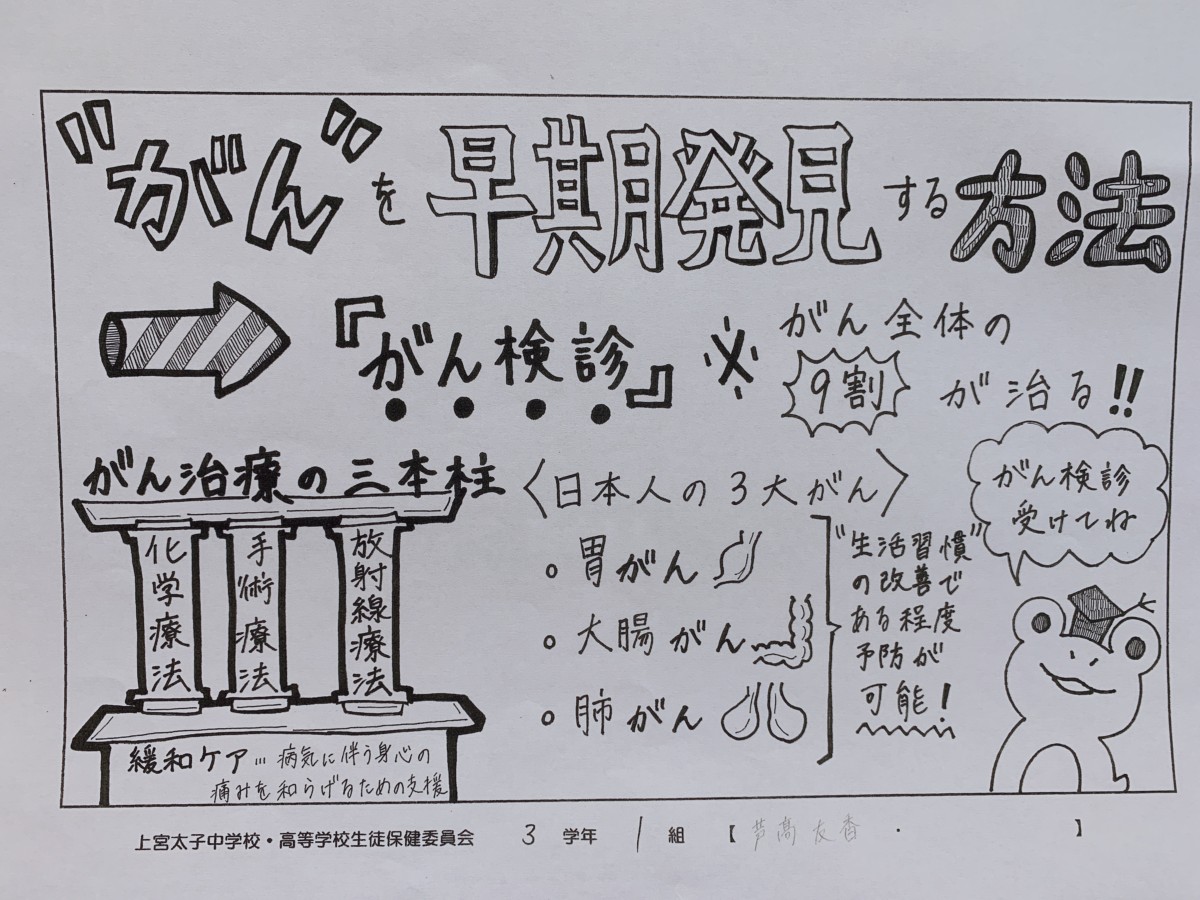 "がん"を早期発見する方法
『がん検診』
※がん全体の
9割が治る!!
がん治療の三本柱
化学療法
手術療法
放射線療法
緩和ケア…病気に伴う身心の
痛みを和らげるための支援
〈日本人の3大がん〉
。胃がん
。大腸がん
。肺がん
"生活習慣"
の改善で
ある程度
予防が
可能!
がん検診
受けてね
上宮太子中学校・高等学校生徒保健委員会 3 学年 1 組 【芦高友香・】